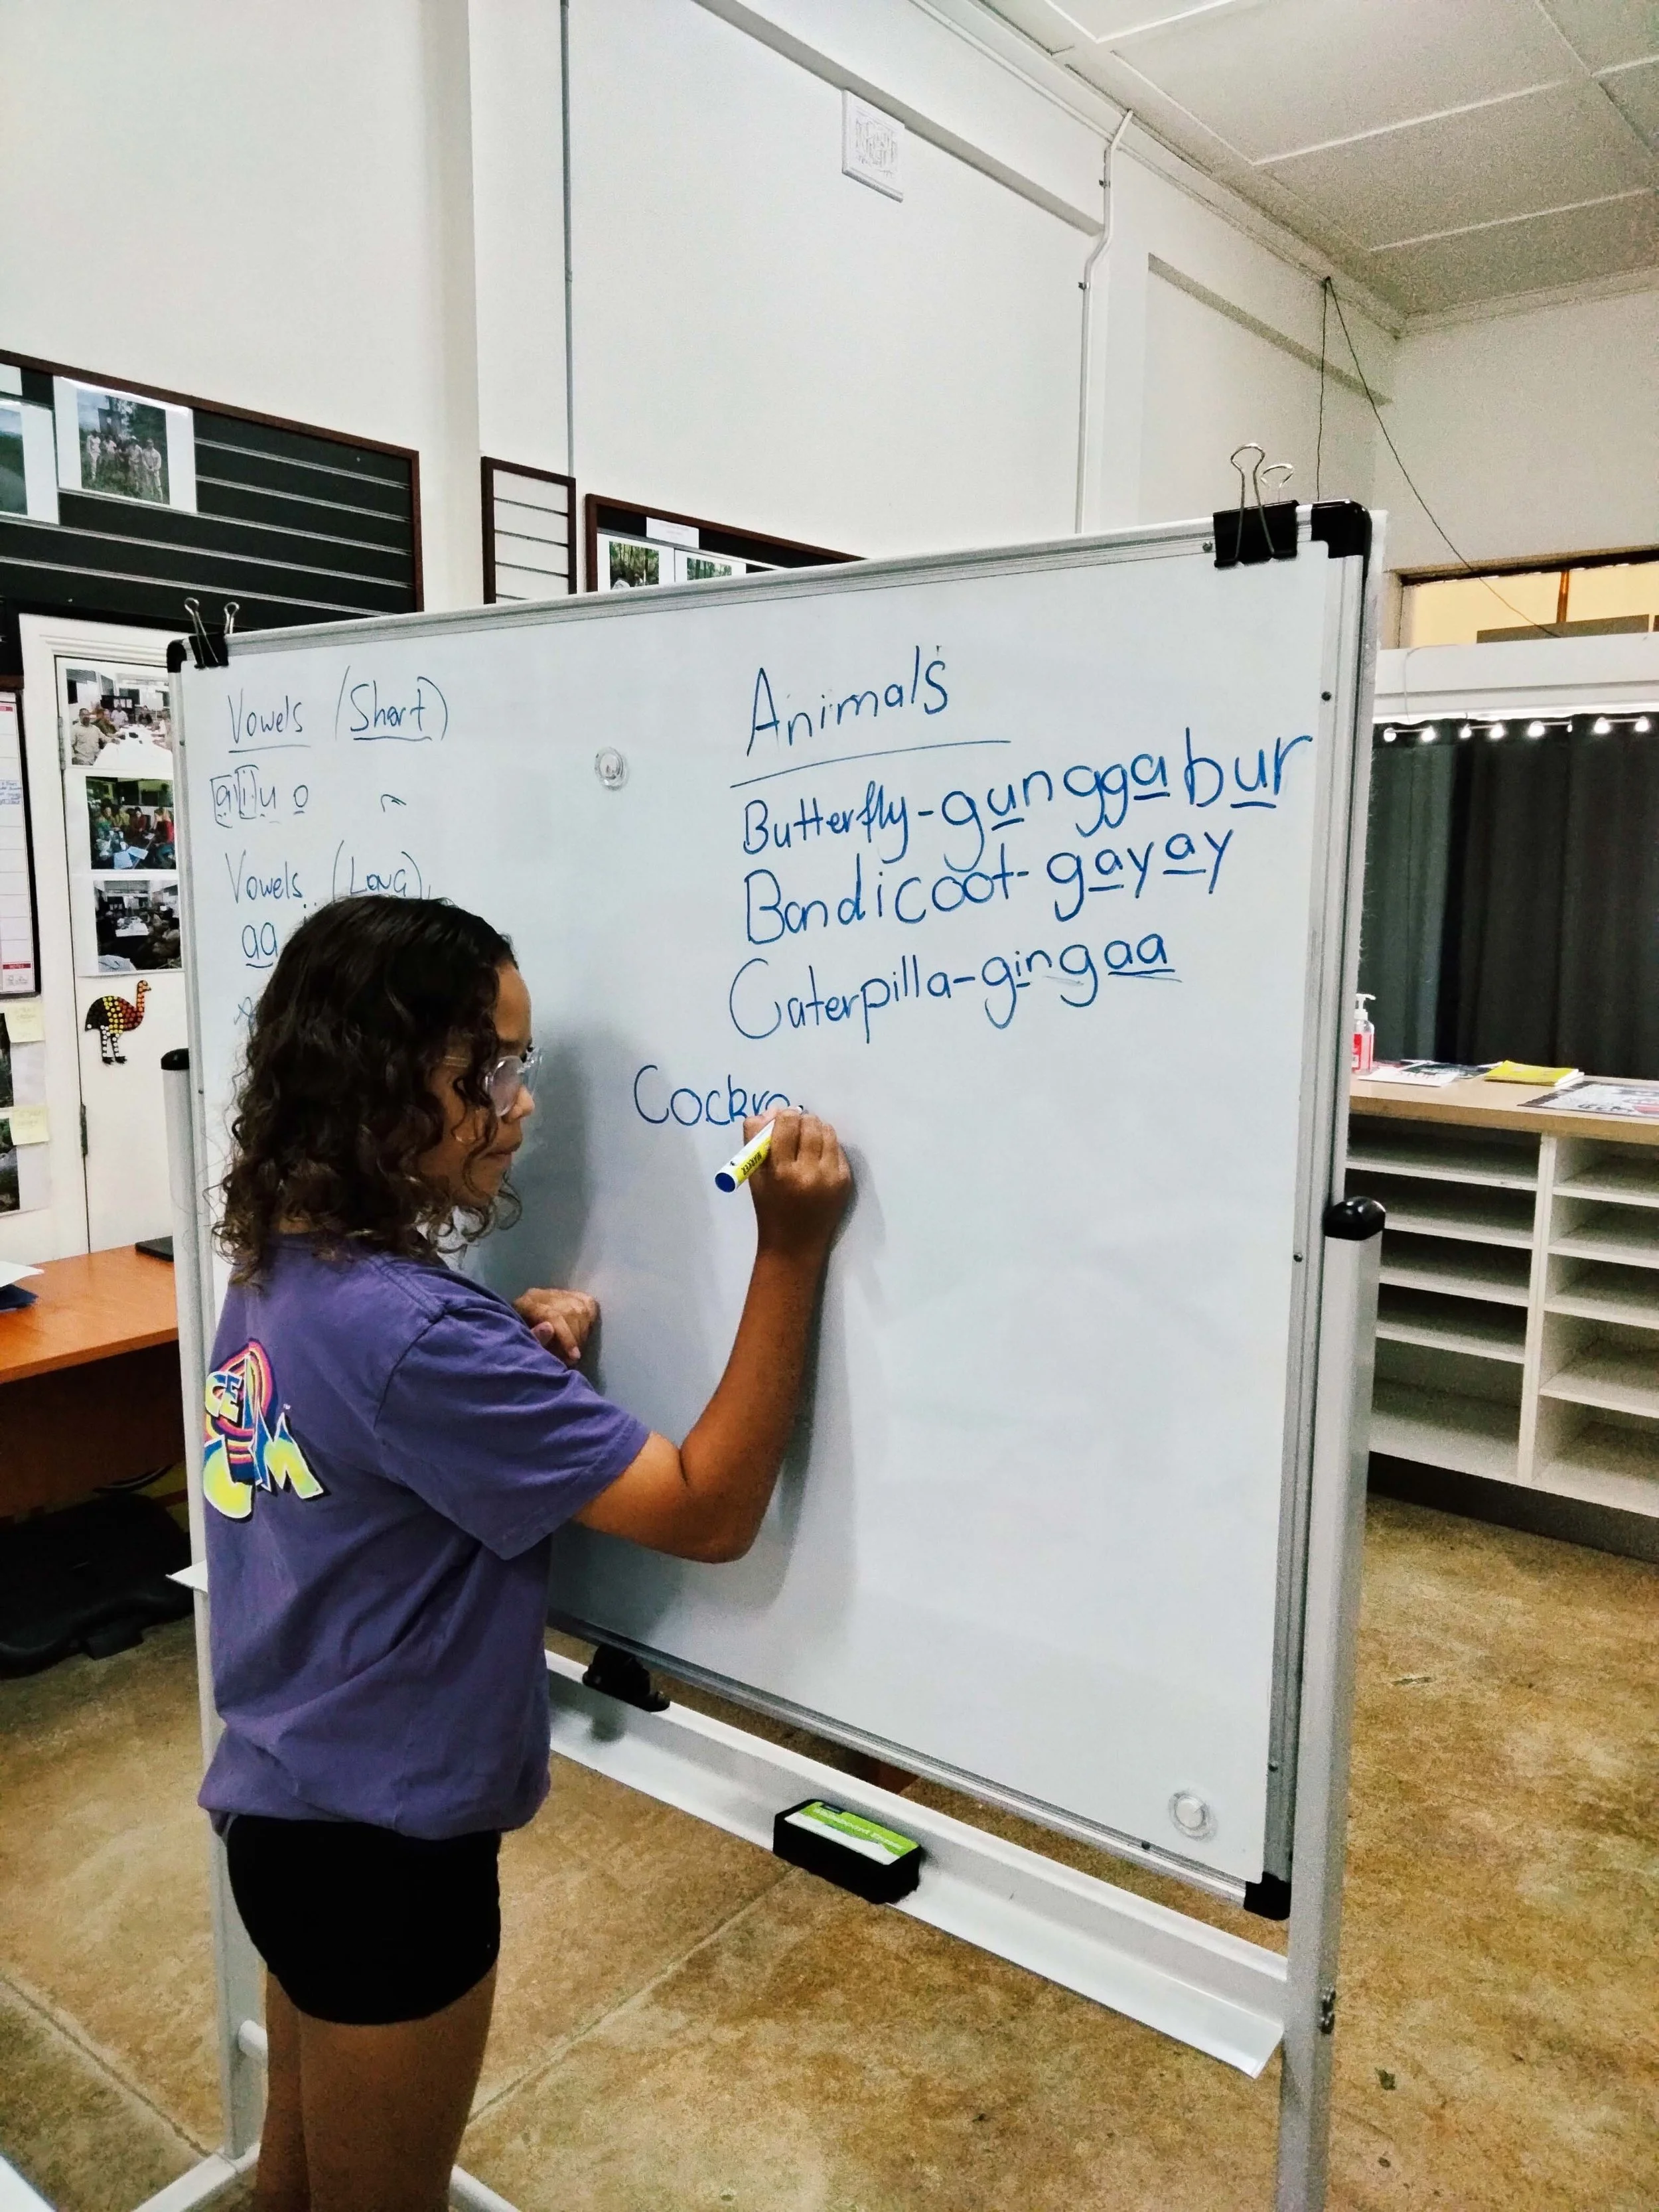 Vowels (Short)
a i u o
Vowels (Long)
aa
Animals
Butterfly-gunggabur
Bandicoot-gayay
Caterpilla-gingaa
Cockro